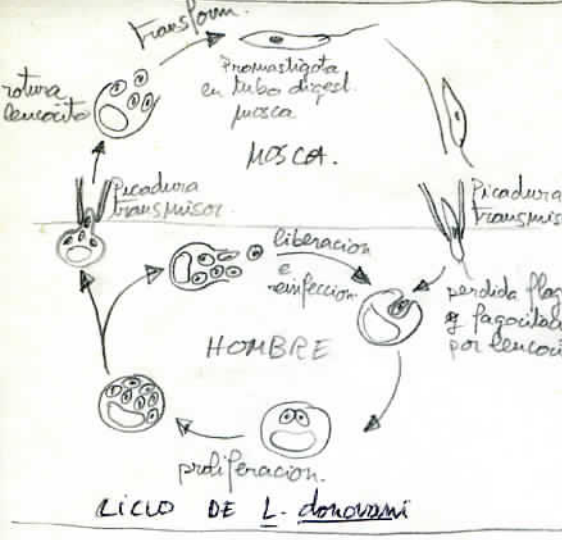 Transform.
rotura
leucocito
Promastigota
en tubo digest.
mosca
MOSCA.
Picadura
transmisor.
Picadura
transmis
liberacion
e
reinfeccion
perdida flag
y fagocitac
por leucoci
HOMBRE
proliferacion.
CICLO DE L. donovani